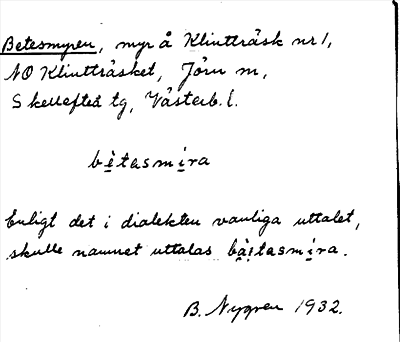 Betesmyren, myr å Klintträsk nr 1,
NO Klintträsket, Jörn sn,
Skellefteå tg, Västerb. l.
bè̩tasmi̩ra
Enligt det i dialekten vanliga uttalet,
skulle namnet uttalas bà̩i̩tasmi̩ra.
B. Nygren 1932.